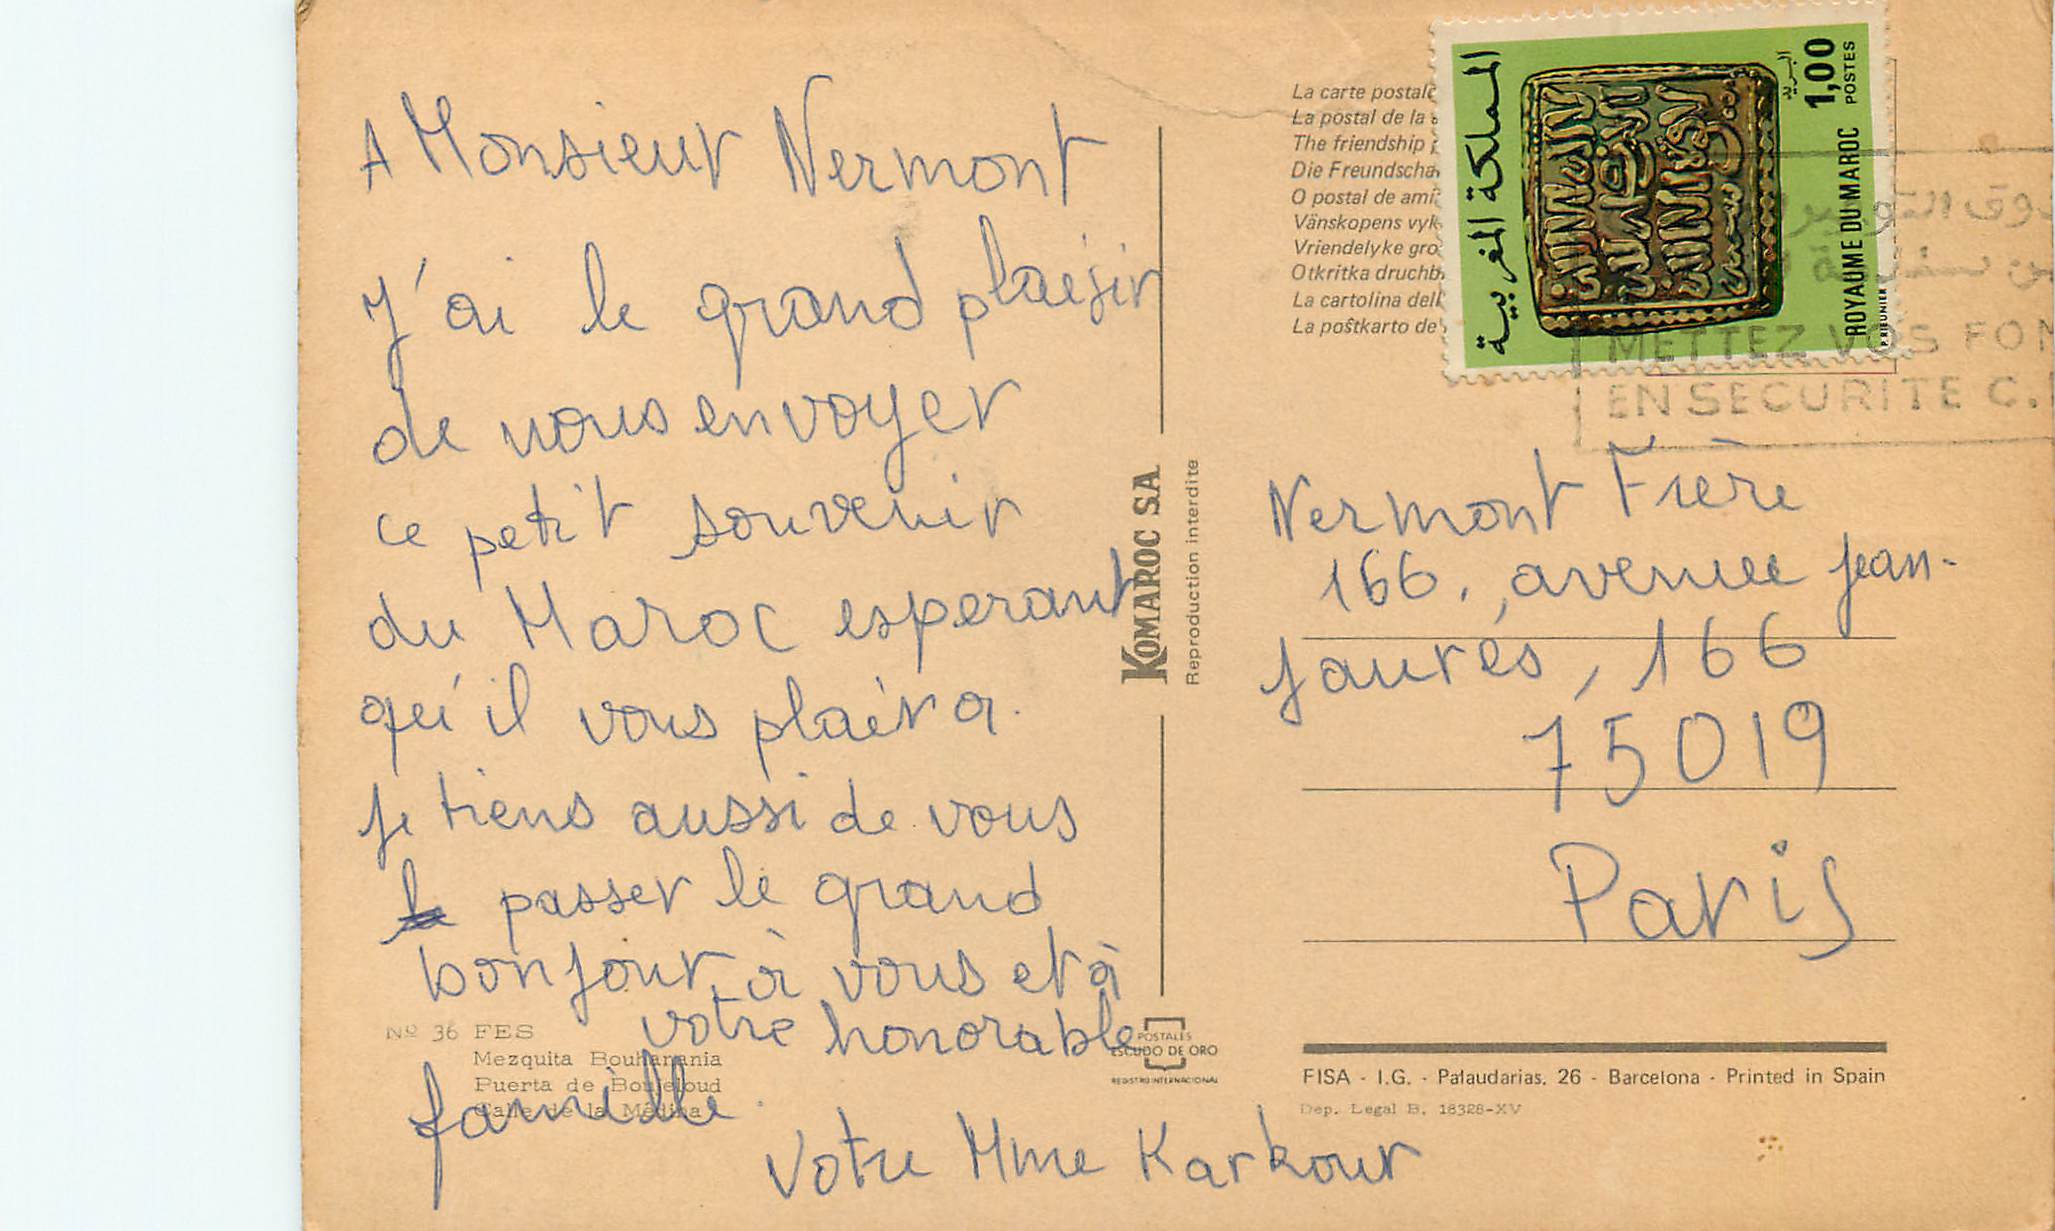 A Monsieur Nermont
J'ai le grand plaisir
de vous envoyer
ce petit souvenir
du Maroc esperant
qu'il vous plaira.
Je tiens aussi de vous
passer le grand
bonjour à vous et à
votre honorable
famille.
Votre Mme Karkour
Nº 36 FES
Mezquita Bouhanania
Puerta de Boujeloud
Calle de la Médina
KOMAROC SA
Reproduction interdite
POSTALES
ESCUDO DE ORO
REGISTRO INTERNACIONAL
La carte postale
La postal de la
The friendship
Die Freundscha
O postal de ami
Vänskopens vyk
Vriendelyke gro
Otkritka druchb
La cartolina dell
La poŝtkarto de
المملكة المغربية
البريد
1,00
POSTES
ROYAUME DU MAROC
P. RIEUNIER
METTEZ VOS FON
EN SECURITE C.
Nermont Frère
166, avenue Jean-
Jaurés, 166
75019
Paris
FISA - I.G. - Palaudarias, 26 - Barcelona - Printed in Spain
Dep. Legal B. 18328-XV